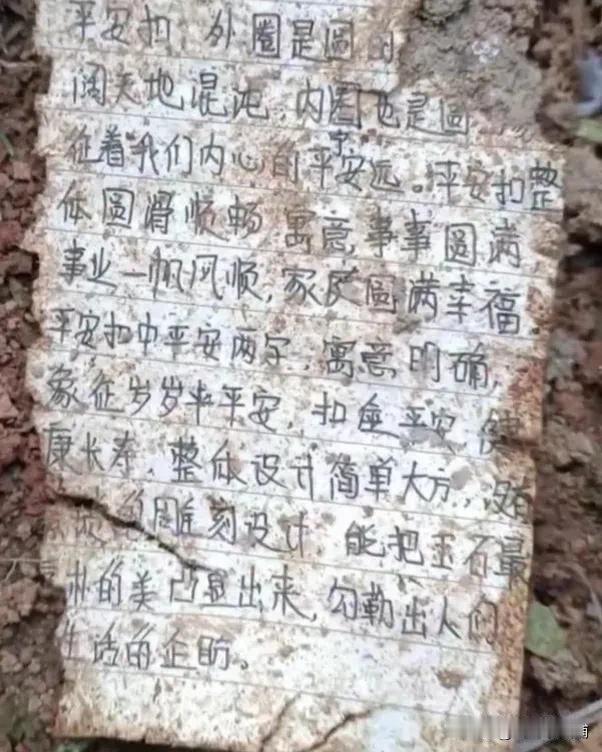 平安扣,外圈是圆
阔天地混沌,内圈也是圆
征着我们内心的平安宁远。平安扣整
体圆滑顺畅,寓意事事圆满,
事业一帆风顺,家庭圆满幸福.
平安扣中平安两字,寓意明确,
象征岁岁平平安,扣 平安 健
康长寿.整体设计简单大方,没有
的雕刻设计 能把玉石最
的美凸显出来,勾勒出人们
生活的企盼。